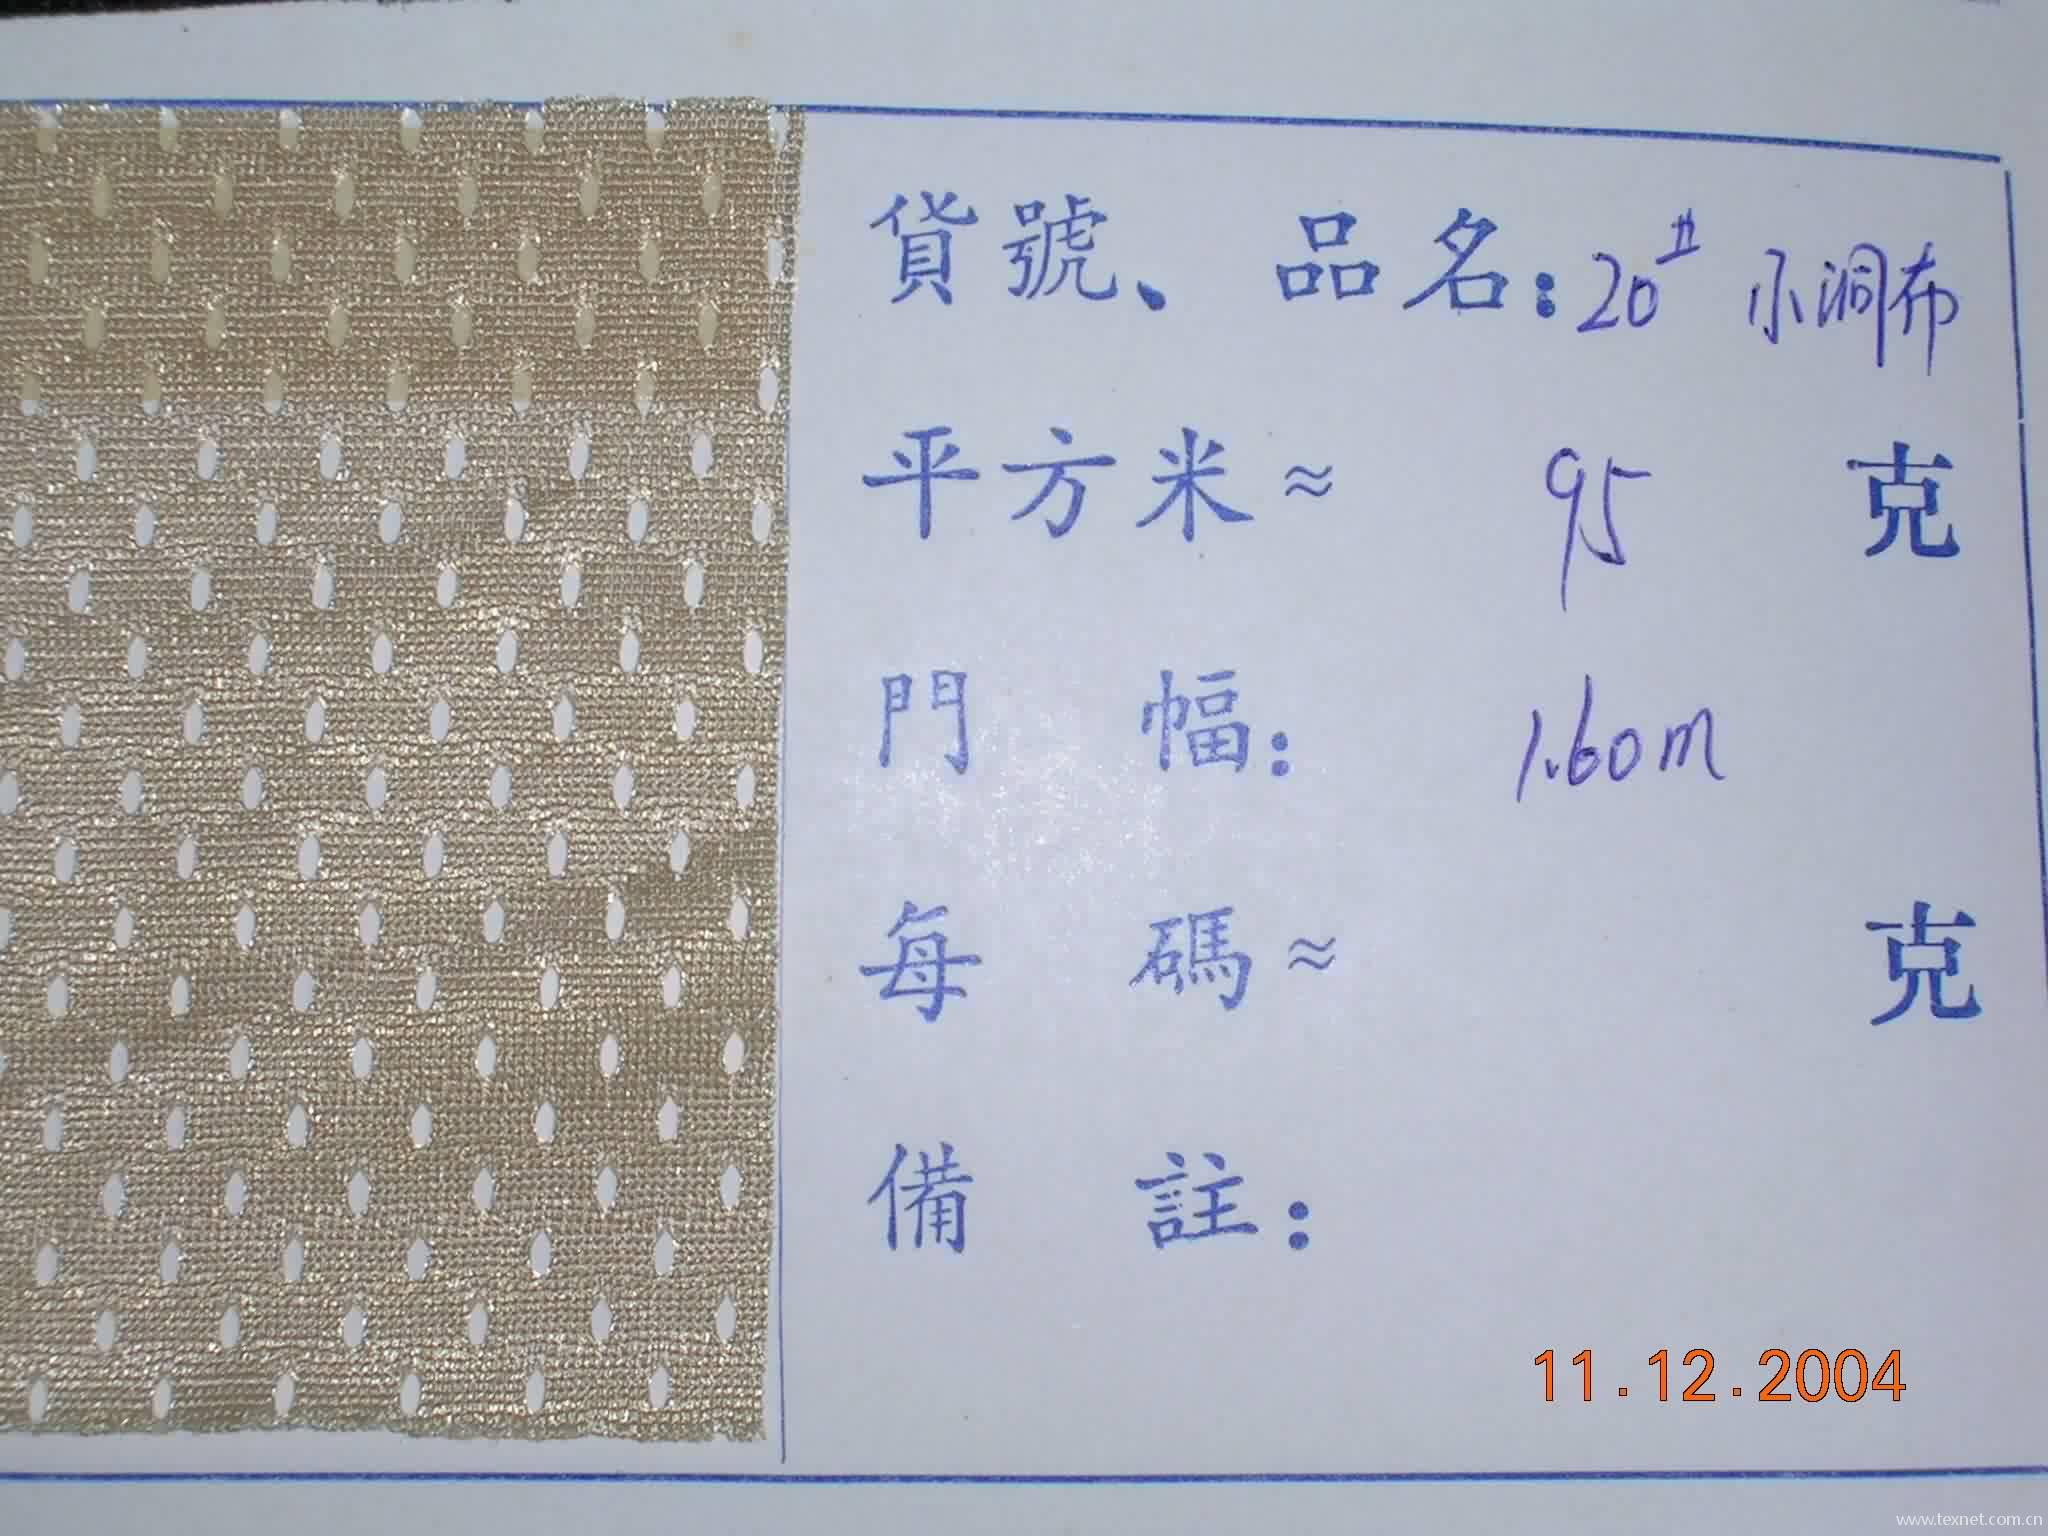 貨號、品名：20# 小洞布
平方米≈ 95 克
門幅：1.60m
每碼≈ 克
備註：
11.12.2004
www.texnet.com.cn